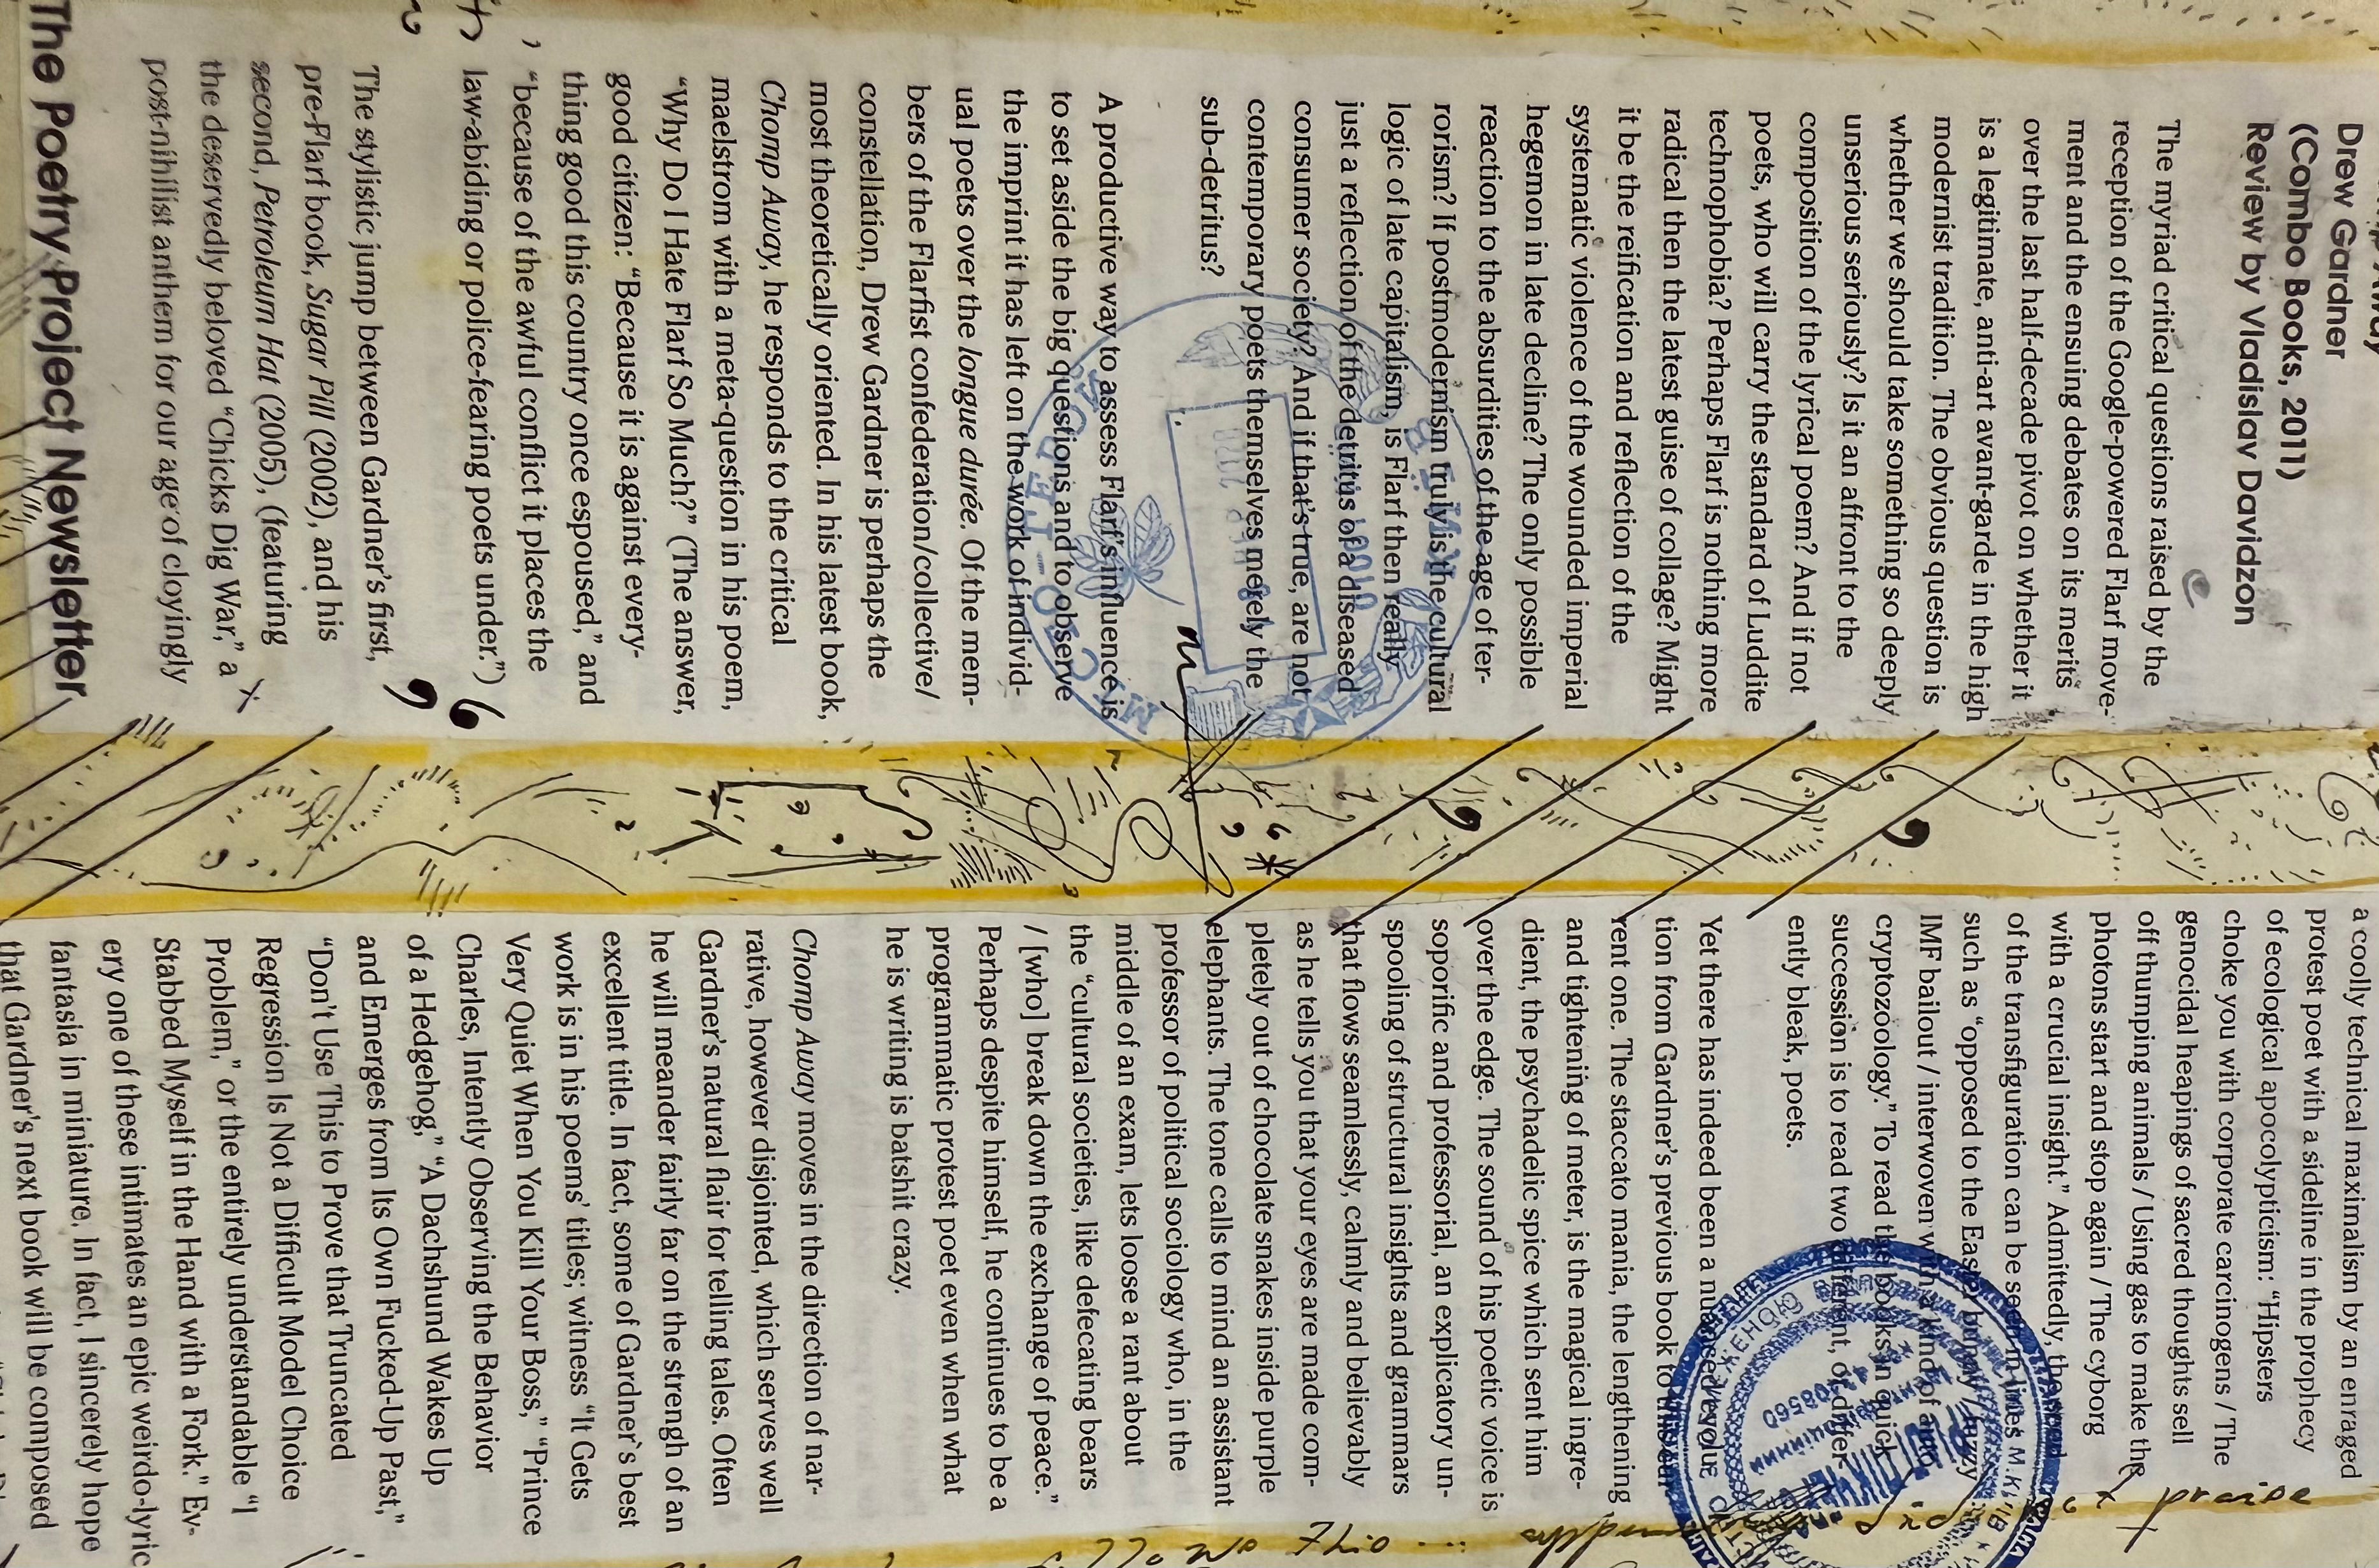 Drew Gardner
(Combo Books, 2011)
Review by Vladislav Davidzon
The myriad critical questions raised by the
reception of the Google-powered Flarf move-
ment and the ensuing debates on its merits
over the last half-decade pivot on whether it
is a legitimate, anti-art avant-garde in the high
modernist tradition. The obvious question is
whether we should take something so deeply
unserious seriously? Is it an affront to the
composition of the lyrical poem? And if not
poets, who will carry the standard of Luddite
technophobia? Perhaps Flarf is nothing more
radical then the latest guise of collage? Might
it be the reification and reflection of the
systematic violence of the wounded imperial
hegemon in late decline? The only possible
reaction to the absurdities of the age of ter-
rorism? If postmodernism truly is the cultural
logic of late capitalism, is Flarf then really
just a reflection of the detritus of a diseased
consumer society? And if that's true, are not
contemporary poets themselves merely the
sub-detritus?
A productive way to assess Flarf's influence is
to set aside the big questions and to observe
the imprint it has left on the work of individ-
ual poets over the longue durée. Of the mem-
bers of the Flarfist confederation/collective/
constellation, Drew Gardner is perhaps the
most theoretically oriented. In his latest book,
Chomp Away, he responds to the critical
maelstrom with a meta-question in his poem,
“Why Do I Hate Flarf So Much?” (The answer,
good citizen: “Because it is against every-
thing good this country once espoused,” and
“because of the awful conflict it places the
law-abiding or police-fearing poets under.”)
The stylistic jump between Gardner's first,
pre-Flarf book, Sugar Pill (2002), and his
second, Petroleum Hat (2005), (featuring
the deservedly beloved “Chicks Dig War,” a
post-nihilist anthem for our age of cloyingly
The Poetry Project Newsletter
a coolly technical maximalism by an enraged
protest poet with a sideline in the prophecy
of ecological apocolypticism: “Hipsters
choke you with corporate carcinogens / The
genocidal heapings of sacred thoughts sell
off thumping animals / Using gas to make the
photons start and stop again / The cyborg
with a crucial insight.” Admittedly, the
of the transfiguration can be seen in lines
such as “opposed to the Easter bunny / fuzzy
IMF bailout / interwoven with a kind of
cryptozoology.” To read the books in quick
succession is to read two different, or differ-
ently bleak, poets.
Yet there has indeed been a nuanced evolu-
tion from Gardner's previous book to this cur-
rent one. The staccato mania, the lengthening
and tightening of meter, is the magical ingre-
dient, the psychadelic spice which sent him
over the edge. The sound of his poetic voice is
soporific and professorial, an explicatory un-
spooling of structural insights and grammars
that flows seamlessly, calmly and believably
as he tells you that your eyes are made com-
pletely out of chocolate snakes inside purple
elephants. The tone calls to mind an assistant
professor of political sociology who, in the
middle of an exam, lets loose a rant about
the “cultural societies, like defecating bears
/ [who] break down the exchange of peace.”
Perhaps despite himself, he continues to be a
programmatic protest poet even when what
he is writing is batshit crazy.
Chomp Away moves in the direction of nar-
rative, however disjointed, which serves well
Gardner's natural flair for telling tales. Often
he will meander fairly far on the strengh of an
excellent title. In fact, some of Gardner's best
work is in his poems' titles; witness “It Gets
Very Quiet When You Kill Your Boss,” “Prince
Charles, Intently Observing the Behavior
of a Hedgehog,” “A Dachshund Wakes Up
and Emerges from Its Own Fucked-Up Past,”
“Don't Use This to Prove that Truncated
Regression Is Not a Difficult Model Choice
Problem,” or the entirely understandable “I
Stabbed Myself in the Hand with a Fork.” Ev-
ery one of these intimates an epic weirdo-lyric
fantasia in miniature. In fact, I sincerely hope
that Gardner's next book will be composed
praise